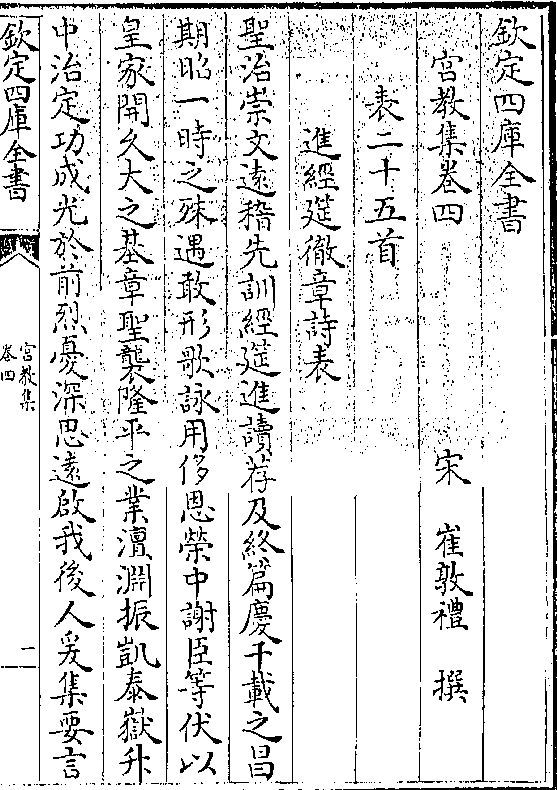 欽定四庫全書
宮教集卷四
宋 崔敦禮 撰
表二十五首
進經筵徹章詩表
聖治崇文遠稽先訓經筵進讀荐及終篇慶千載之昌
期昭一時之殊遇敢形歌詠用侈恩榮中謝臣等伏以
皇家開久大之基章聖襲隆平之業澶淵振凱泰嶽升
中治定功成光於前烈憂深思遠啟我後人爰集要言
欽定四庫全書
宮教集
卷四
一